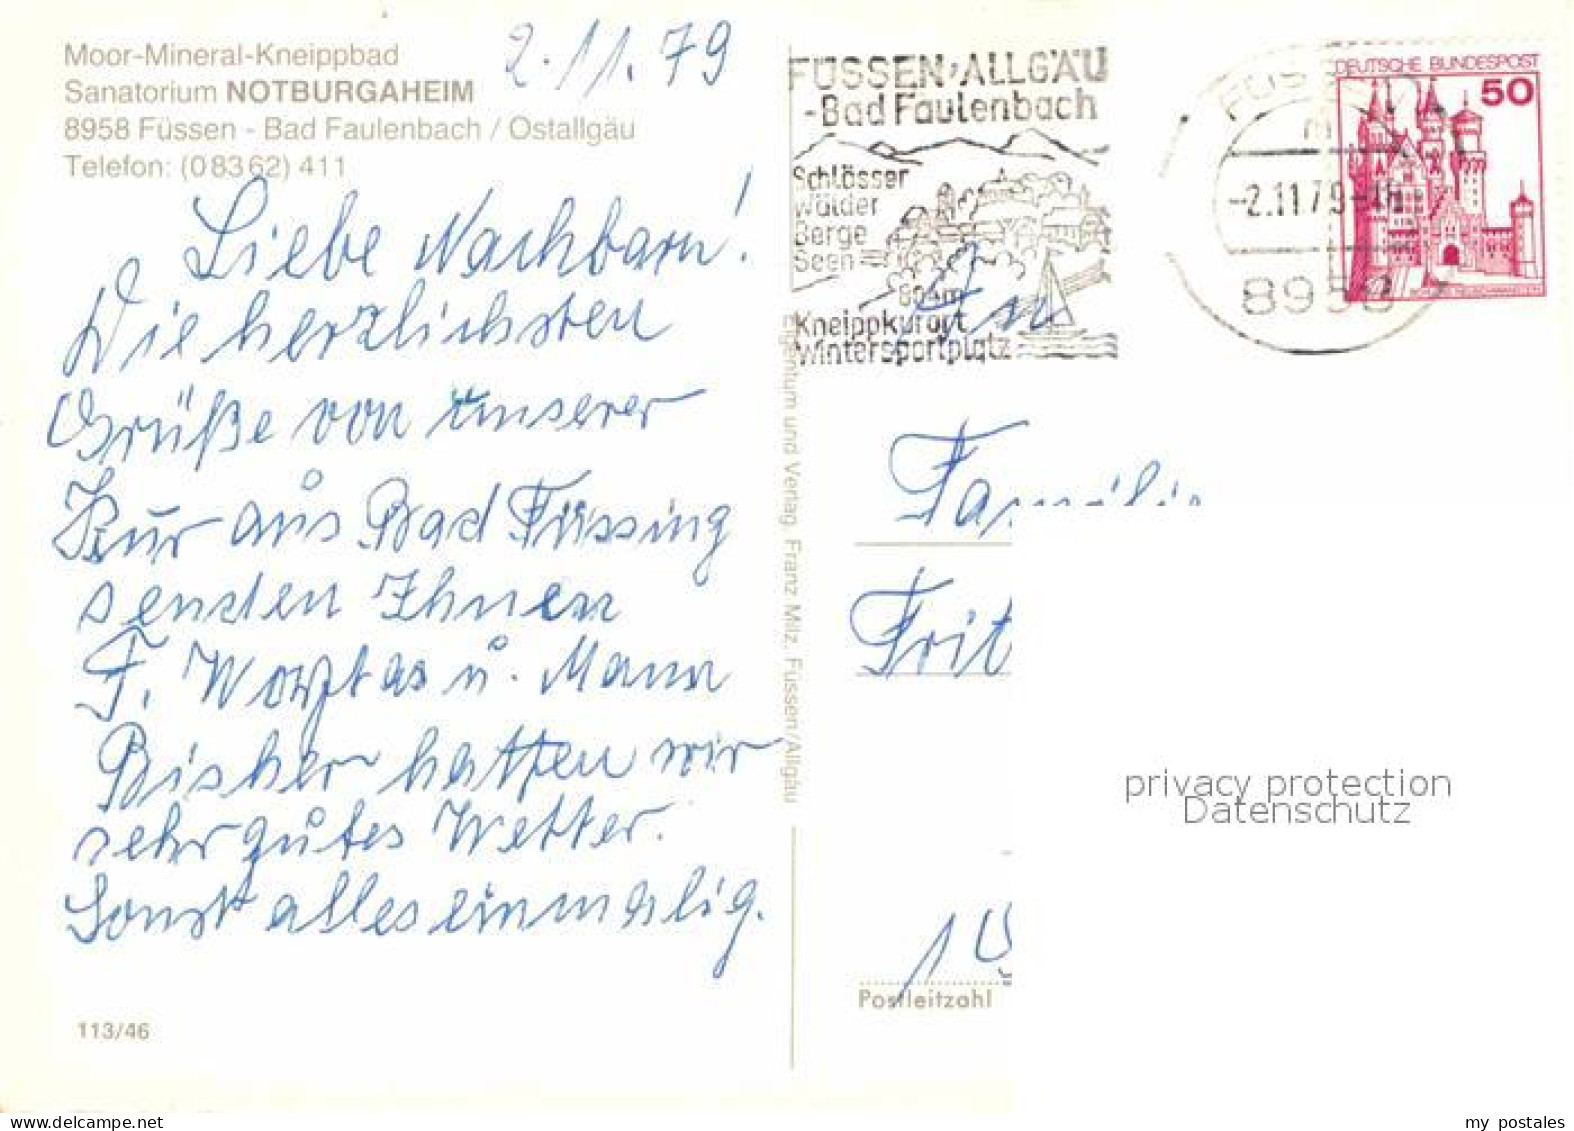 Moor-Mineral-Kneippbad
Sanatorium NOTBURGAHEIM
8958 Füssen - Bad Faulenbach / Ostallgäu
Telefon: (08362) 411
2.11.79
Liebe Nachbarn!
Die herzlichsten
Grüße von unserer
Kur aus Bad Füssing
senden Ihnen
F. u. Mann
Bisher hatten wir
sehr gutes Wetter.
Sonst alles einmalig.
113/46
Eigentum und Verlag, Franz Milz, Füssen/Allgäu
FÜSSEN/ALLGÄU
-Bad Faulenbach
Schlösser
Wälder
Berge
Seen
804m
Kneippkurort
Wintersportplatz
-2.11.79-
8958
DEUTSCHE BUNDESPOST
50
An
Familie
Frit
Postleitzahl
privacy protection
Datenschutz
my postales